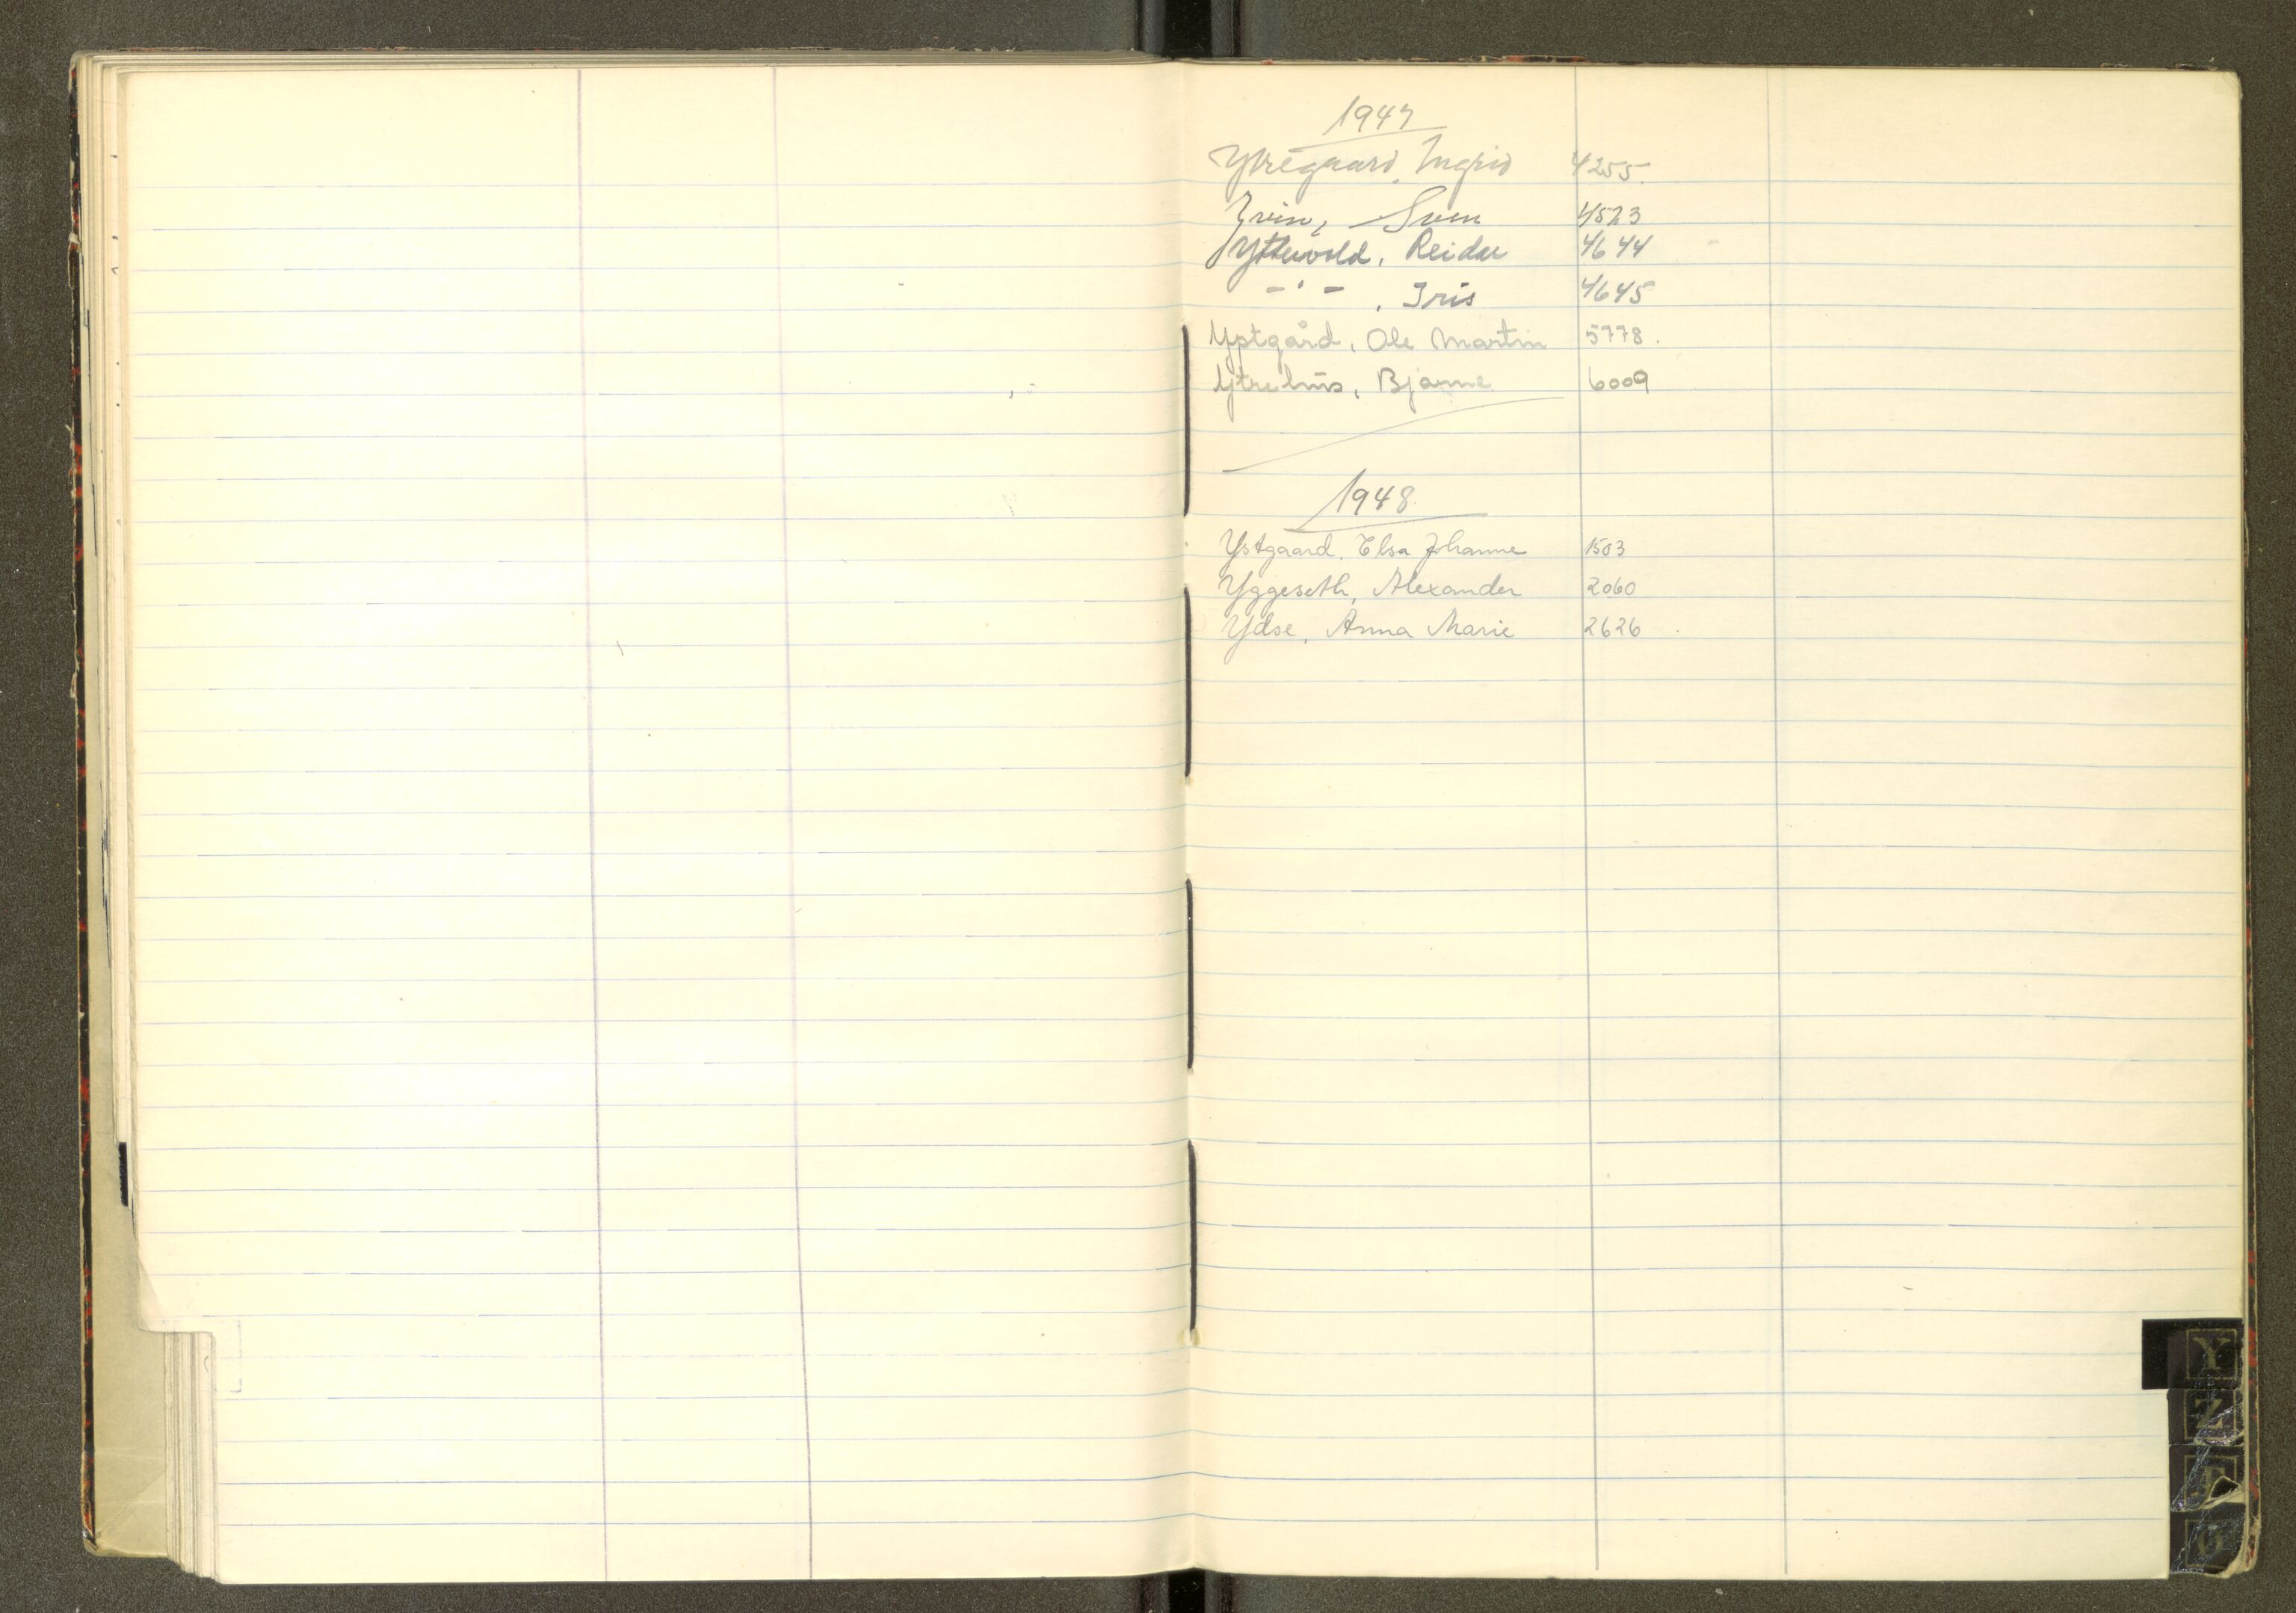 1947
Ytregaard, Ingrid 4255.
Sven 4523
Yttervold, Reidar 4644
-"- , Iris 4645
Ystgård, Ole Martin 5778.
Ytrehus, Bjarne 6009
1948
Ystgaard, Elsa Johanne 1503
Yggeseth, Alexander 2060
Ydse, Anna Marie 2626
Y
Z